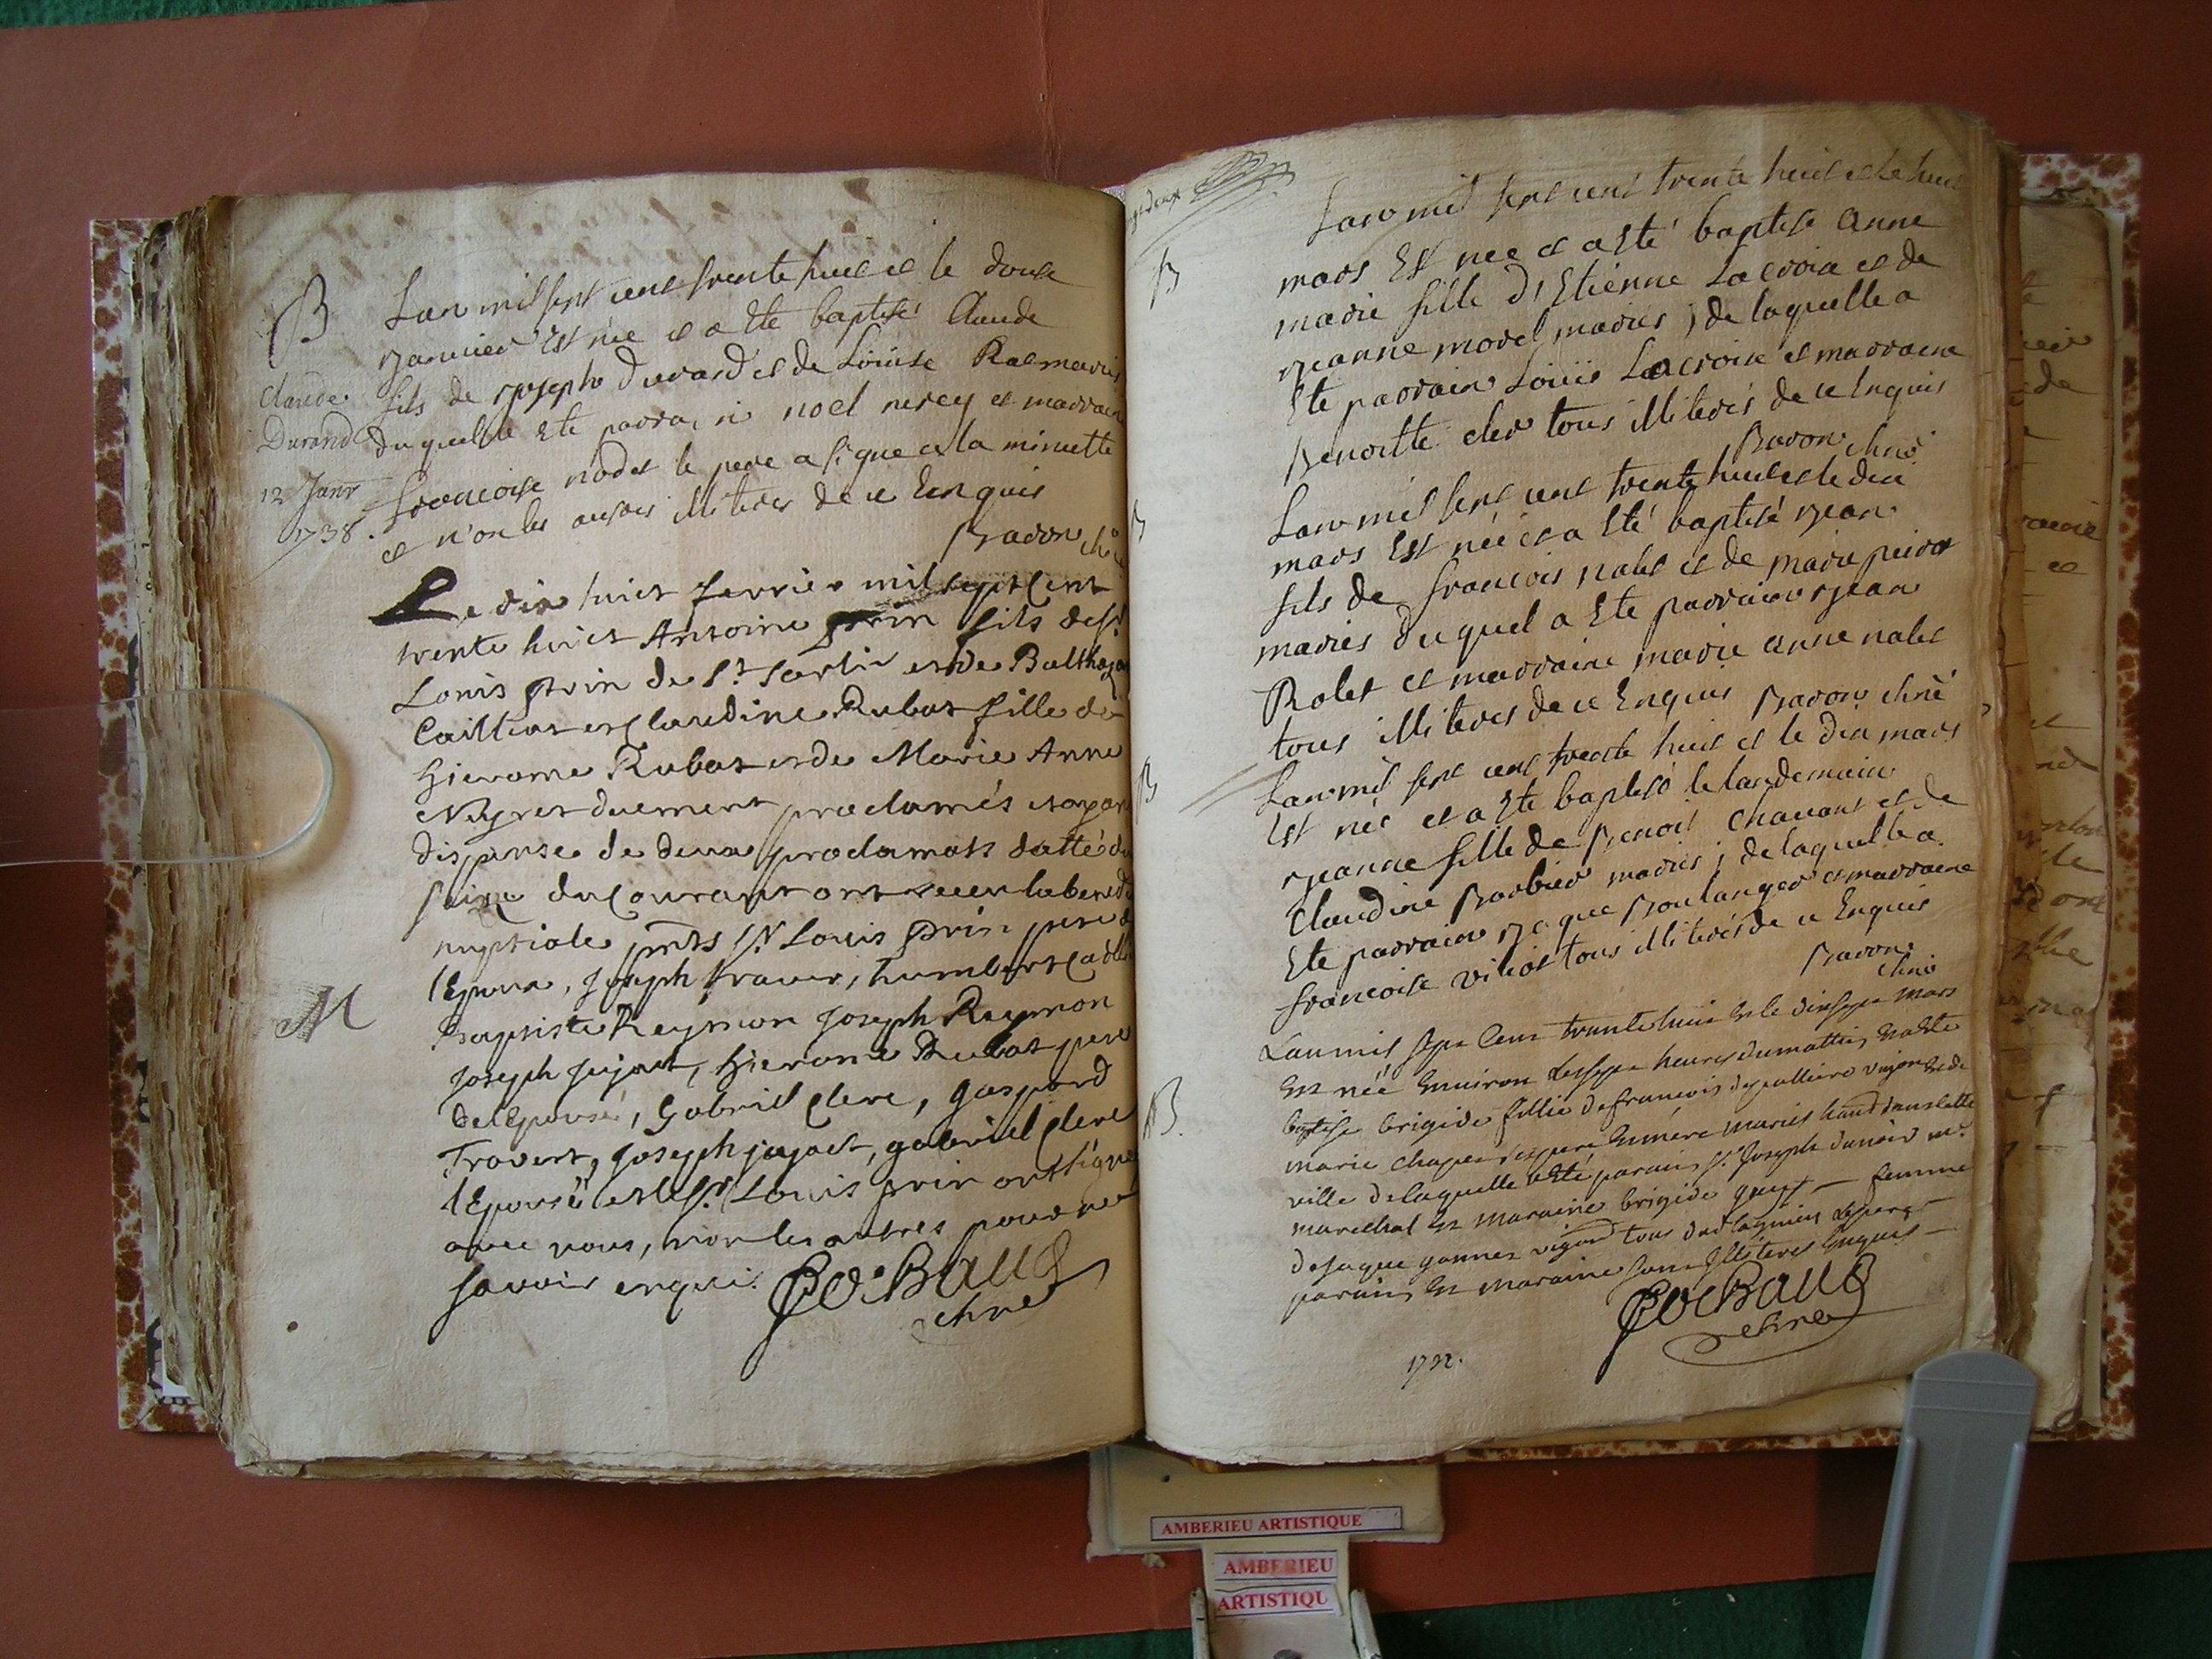 B
Lan mil sept cent trente huit et le douse
Janvier Est née et a Ete baptisé Claude
Claude
Durand
12 Janv
1738.
fils de Joseph Durand et de Loüise Rat mariés
du quel a Ete parrain noel nerey et marraine
francoise nodet le pere a signe a la minutte
et non les autres illiteres de ce Enquis
Bavon chne
Le dix huict fevrier mil sept cent
trente huict Antoine prin fils de Sr
Louis prin de St Sorlin et de Balthazar
Caillat et Claudine Rubat fille de
hierome Rubat et de Marie Anne
Negret duement proclamés et ayant
dispense de deux proclamats datté du
seize du Courant ont receu la bened
nuptiale pnts Sr Louis prin pere de
lEpoux, Joseph travers, humbert
Baptiste Reymon Joseph Reymon
M
Joseph jujat, hierome Rubat pere
de lEpouse, Gabriel Clerc, gaspard
Travert, Joseph jujat, gabriel Clerc
lEpouse et le Sr Louis prin ont signé
avec nous, non les autres pour ne
savoir enquis. Cochaud
chne
B
Lan mil sept cent trente huit et le huit
mars Est nee et a Eté baptise anne
marie fille d'Etienne Lacroix et de
Jeanne morel mariés ; de laquelle a
Ete parrain Loüis Lacroix et marraine
Benoitte cler tous illiterés de ce Enquis
Bavon chne
B
Lan mil sept cent trente huit et le dix
mars Est née et a Eté baptisé Jean
fils de francois nalet et de marie
mariés du quel a Ete parrain Jean
Rolet et marraine marie anne nalet
tous illiteres de ce Enquis Bavon chne
B
Lan mil sept cent trente huit et le dix mars
Est née et a Ete baptisé le landemain
Jeanne fille de Benoit Chavant et de
Claudine Barbier mariés ; de laquelle a
Ete parrain Jaque Boulanger et marraine
francoise villiot tous illiterés de ce Enquis
Bavon
chne
B.
Lan mil sept Cent trente huit et le dix sept mars
Est née Environ les sept heures du mattin, Et a Ete
baptise brigide fillie de francois depalliere vigon et de
marie Chaper des pere et mere mariés hand dans cette
ville de laquelle a Eté parain, Sr Joseph danoid me
marechal et maraine brigide guy — femme
de Jaque gonnet vigon tous de lagnieu le pere
parain, et maraine sont illiteres Enquis —
Cochaud
chne
1792.
AMBERIEU ARTISTIQUE
AMBERIEU
ARTISTIQU